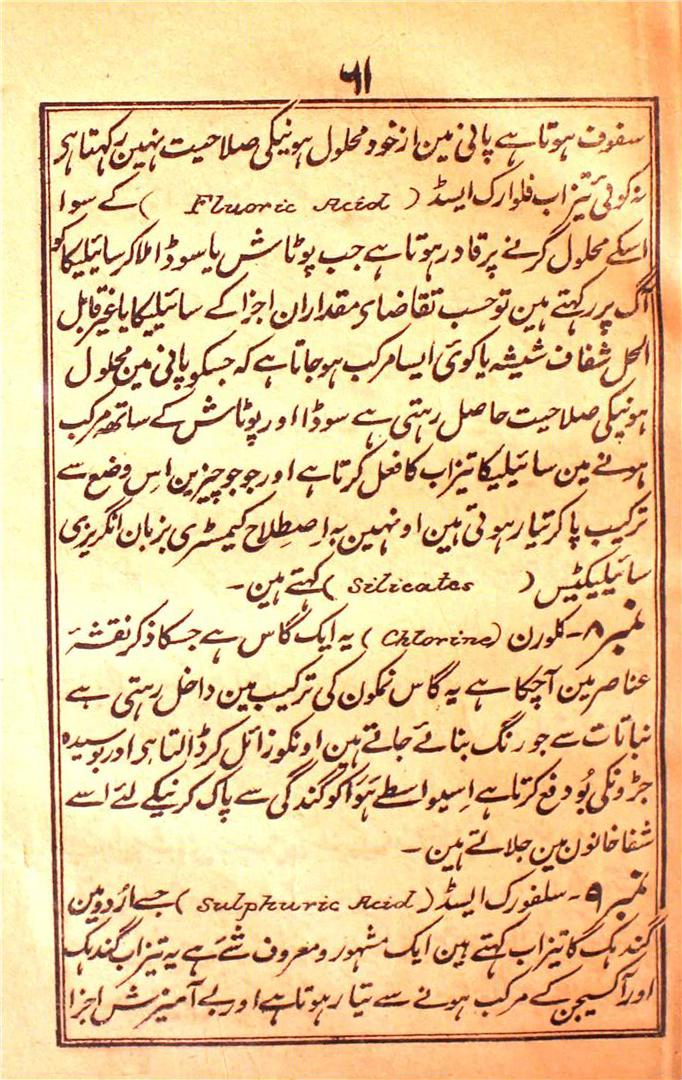 ۶۱
سفوف ہوتا ہے پانی مین ازخود محلول ہونیکی صلاحیت نہین رکہتا ہی
نہ کوئی تیزاب فلوارک ایسڈ ( Fluoric Acid ) کے سوا
اسکے محلول کرنے پر قادر ہوتا ہے جب پوٹاش یا سوڈا ملا کر سائیلیکا کو
آگ پر رکہتے ہین تو حسب تقاضای مقدار ان اجزا کے سائیلیکا یا غیر قابل
الحل شفاف شیشہ یا کوئی ایسا مرکب ہو جاتا ہے کہ جسکو پانی مین محلول
ہونیکی صلاحیت حاصل رہتی ہے سوڈا اور پوٹاش کے ساتھہ مرکب
ہونے مین سائیلیکا تیزاب کا فعل کرتا ہے اور جو جو چیزین اِس وضع سے
ترکیب پا کر تیار ہوتی ہین اونہین بہ اِصطِلاح کیمسٹری بزبان انگریزی
سائیلیکیٹس ( Silicates ) کہتے ہین ۔
نمبر ۸ ۔ کلورن ( Chlorine ) یہ ایک گاس ہے جسکا ذکر نقشۂ
عناصر مین آچکا ہے یہ گاس نمکون کی ترکیب مین داخل رہتی ہے
نباتات سے جو رنگ بنائے جاتے ہین اونکو زائل کر ڈالتا ہی اور بوسیدہ
جڑونکی بُو دفع کرتا ہے اِسیواسطے ہَوا کو گندگی سے پاک کرنیکے لئے اسے
شفاخانون مین جلاتے ہین ۔
نمبر ۹ ۔ سلفورک ایسڈ ( Sulphuric Acid ) جسے اردو مین
گندہک کا تیزاب کہتے ہین ایک مشہور و معروف شئے ہے یہ تیزاب گندہک
اور آکسیجن کے مرکب ہونے سے تیار ہوتا ہے اور بے آمیزش اجزا